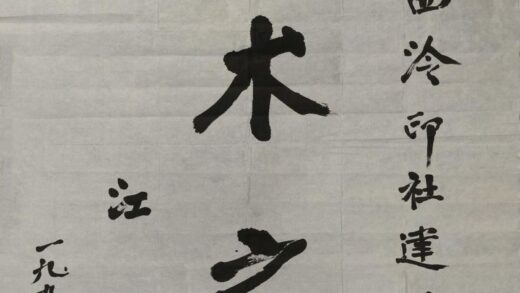 西泠印社建
木
江
一九